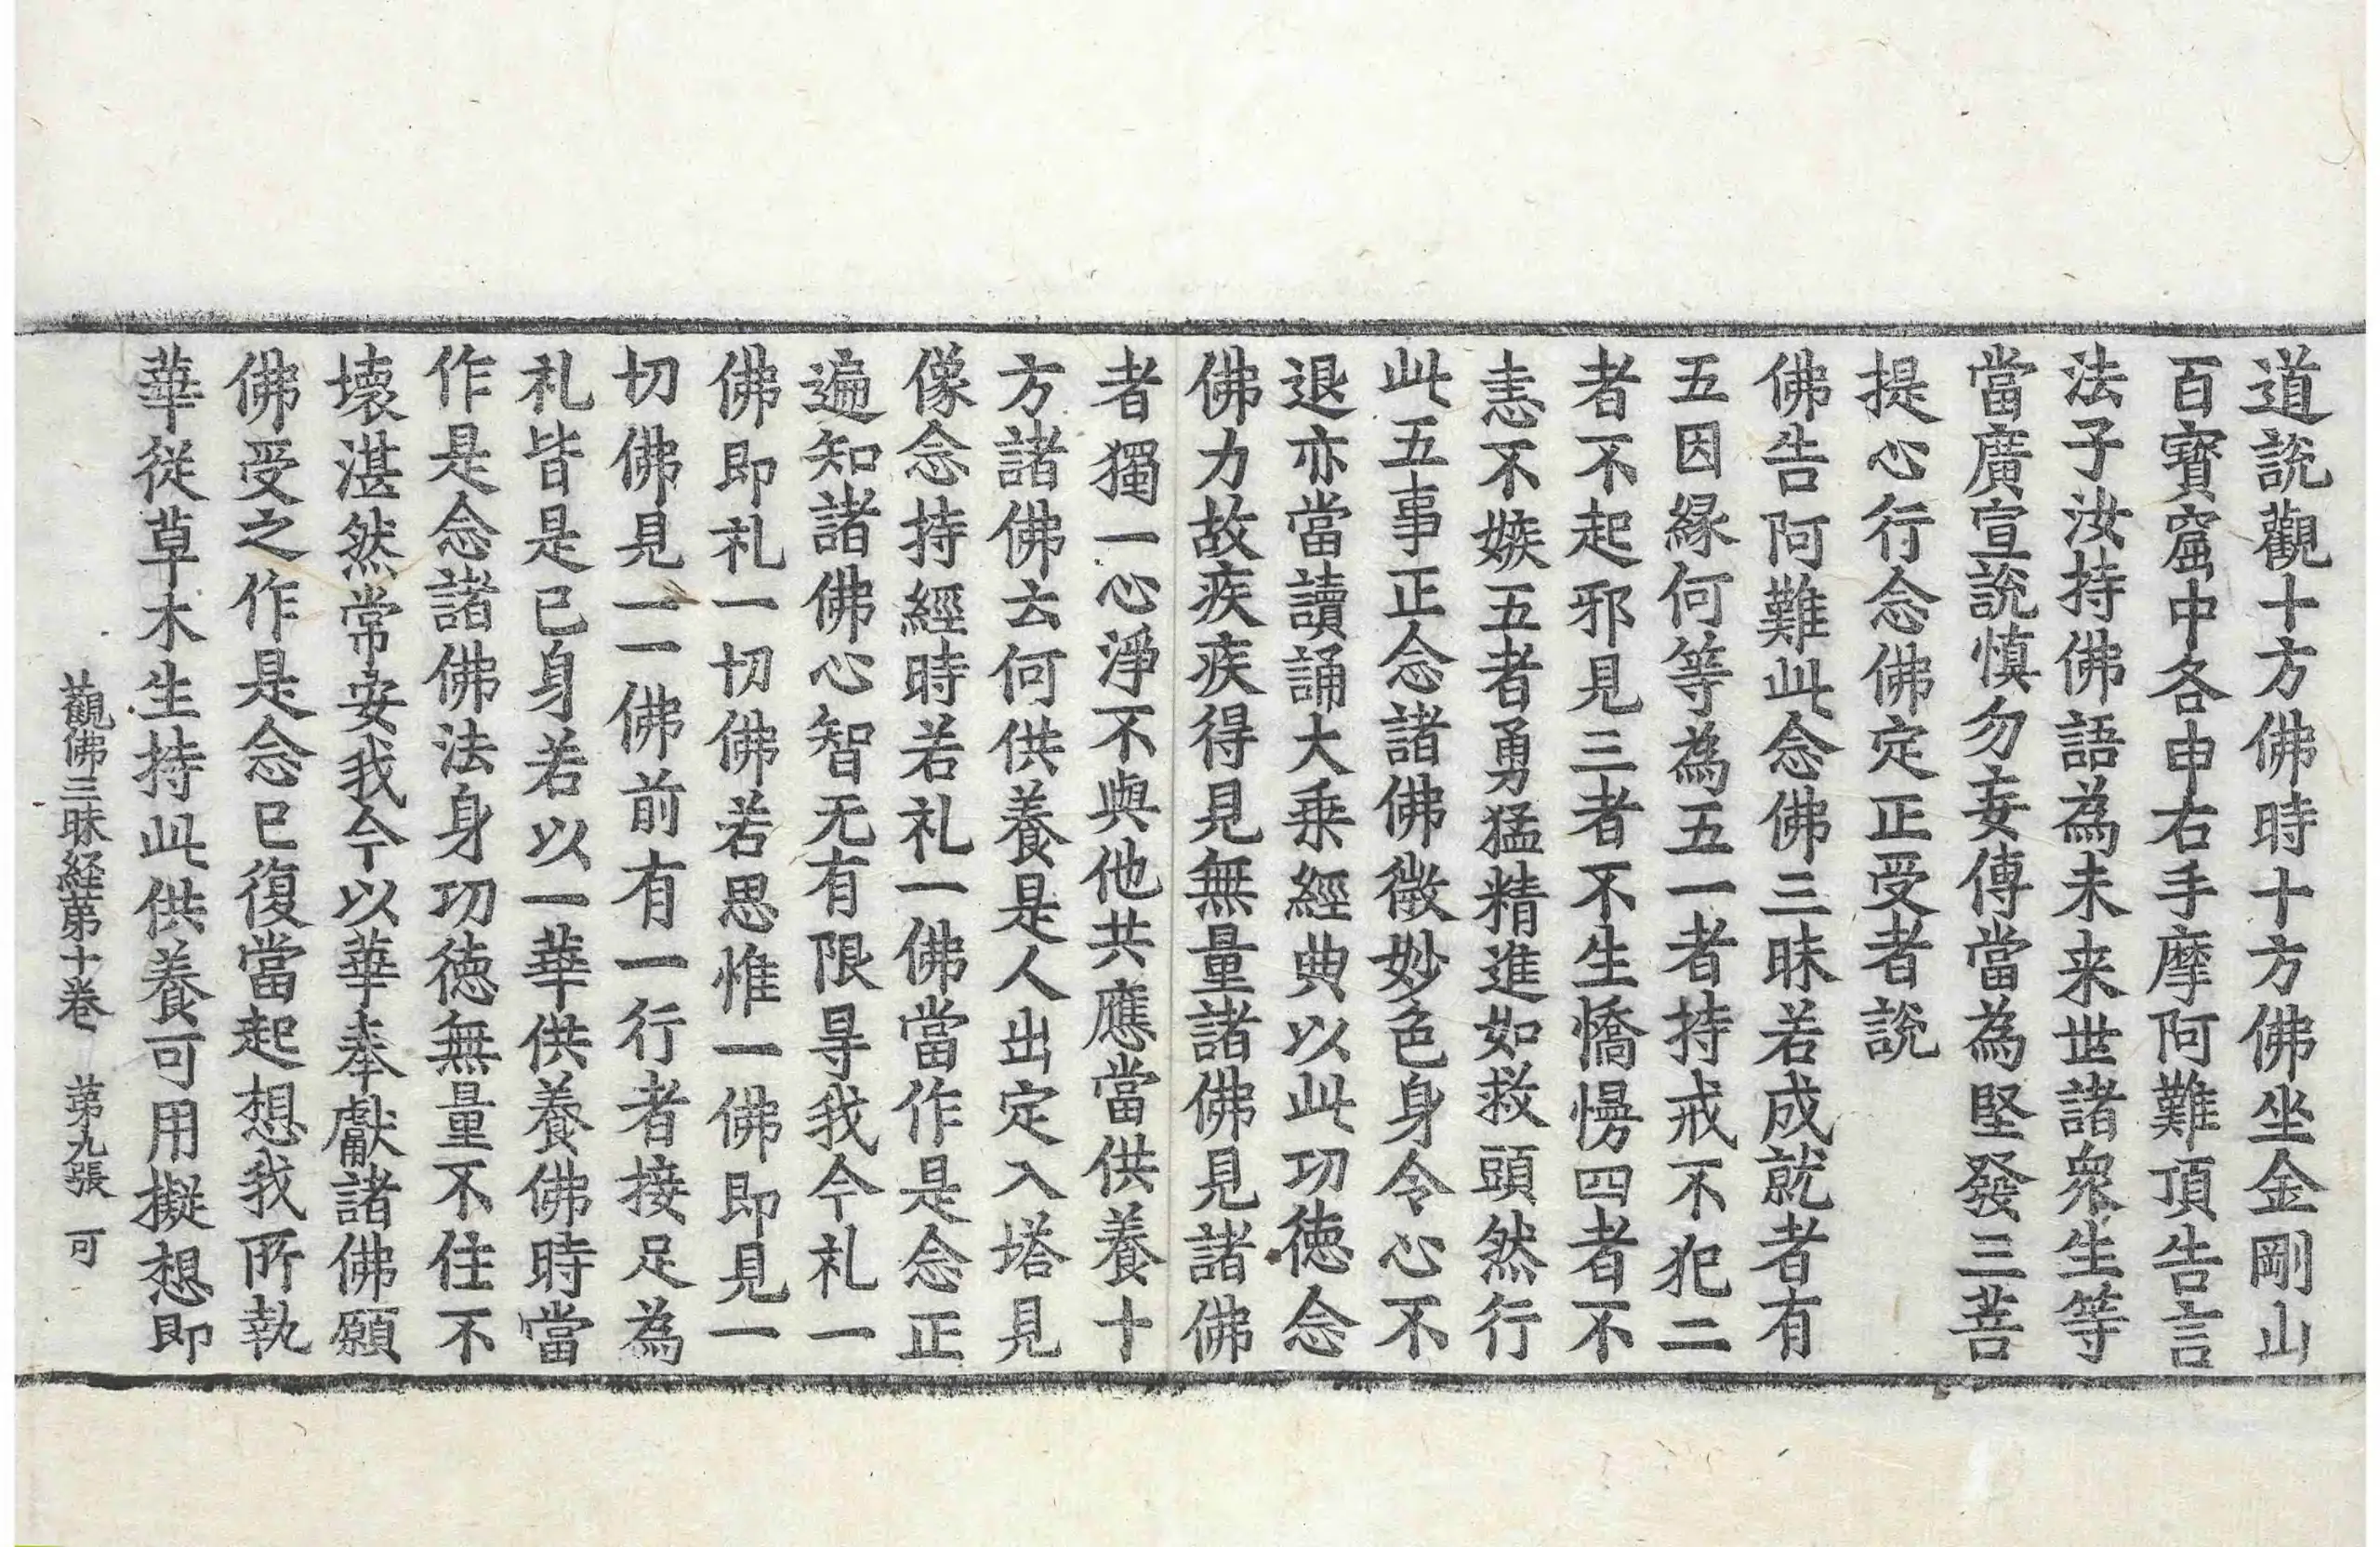 道説觀十方佛時十方佛坐金剛山
百寳窟中各申右手摩阿難頂告言
法子汝持佛語為未来世諸衆生等
當廣宣説慎勿妄傳當為堅發三菩
提心行念佛定正受者説
佛告阿難此念佛三昧若成就者有
五因緣何等為五一者持戒不犯二
者不起邪見三者不生憍慢四者不
恚不嫉五者勇猛精進如救頭然行
此五事正念諸佛微妙色身令心不
退亦當讀誦大乗經典以此功徳念
佛力故疾疾得見無量諸佛見諸佛
者獨一心淨不與他共應當供養十
方諸佛云何供養是人出定入塔見
像念持經時若礼一佛當作是念正
遍知諸佛心智无有限㝵我今礼一
佛即礼一切佛若思惟一佛即見一
切佛見一一佛前有一行者接足為
礼皆是已身若以一華供養佛時當
作是念諸佛法身功徳無量不住不
壊湛然常安我今以華奉獻諸佛願
佛受之作是念已復當起想我所執
華從草木生持此供養可用擬想即
觀佛三昧経苐十巻 苐九張 可